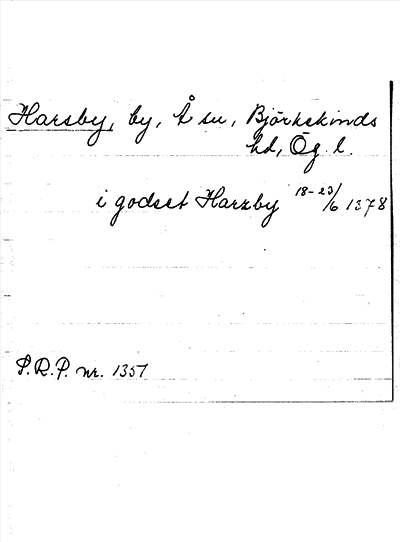 Harsby, by, Å sn, Björkekinds
hd, Ög. l.
i godset Harxby 18-23/6 1378
S.R.P. nr. 1357